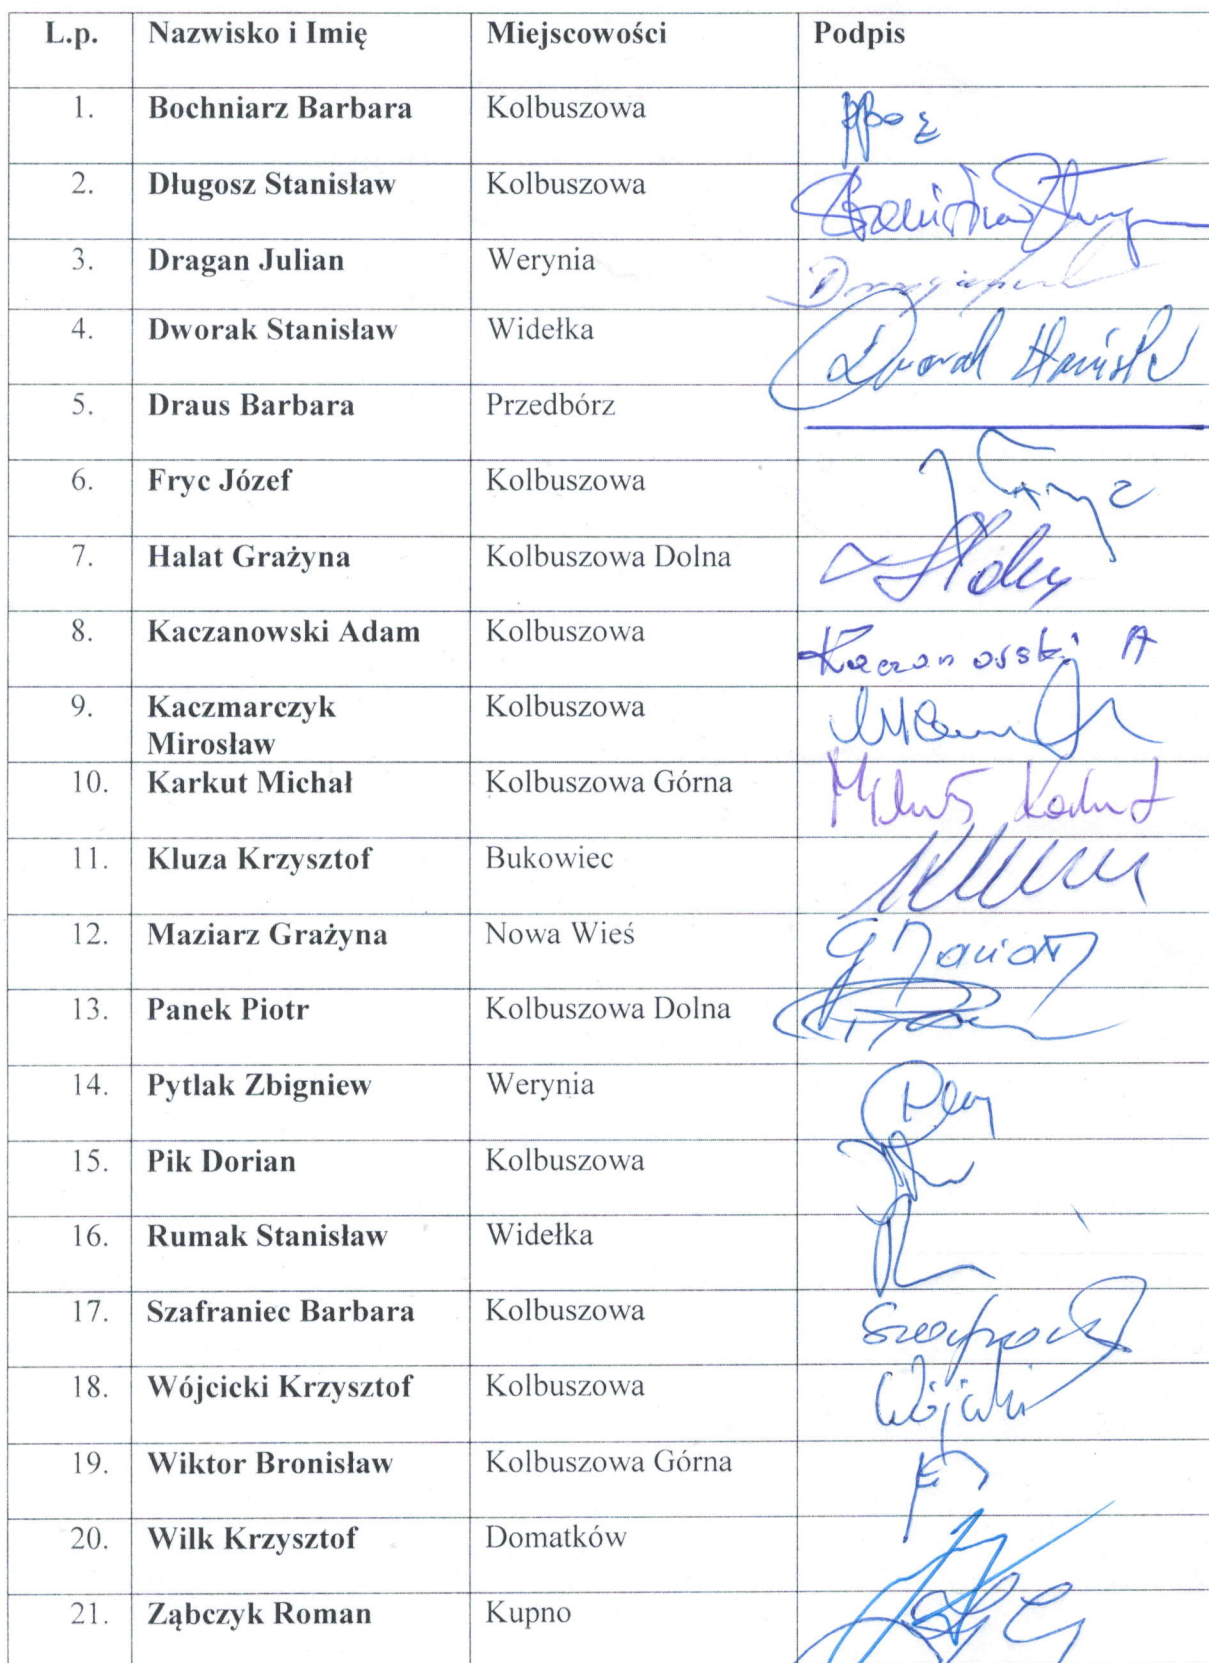 L.p. Nazwisko i Imię Miejscowości Podpis
1. Bochniarz Barbara Kolbuszowa
2. Długosz Stanisław Kolbuszowa
3. Dragan Julian Werynia
4. Dworak Stanisław Widełka
5. Draus Barbara Przedbórz
6. Fryc Józef Kolbuszowa
7. Halat Grażyna Kolbuszowa Dolna
8. Kaczanowski Adam Kolbuszowa Kaczanowski A
9. Kaczmarczyk Kolbuszowa
Mirosław
10. Karkut Michał Kolbuszowa Górna
11. Kluza Krzysztof Bukowiec
12. Maziarz Grażyna Nowa Wieś
13. Panek Piotr Kolbuszowa Dolna
14. Pytlak Zbigniew Werynia
15. Pik Dorian Kolbuszowa
16. Rumak Stanisław Widełka
17. Szafraniec Barbara Kolbuszowa
18. Wójcicki Krzysztof Kolbuszowa
19. Wiktor Bronisław Kolbuszowa Górna
20. Wilk Krzysztof Domatków
21. Ząbczyk Roman Kupno